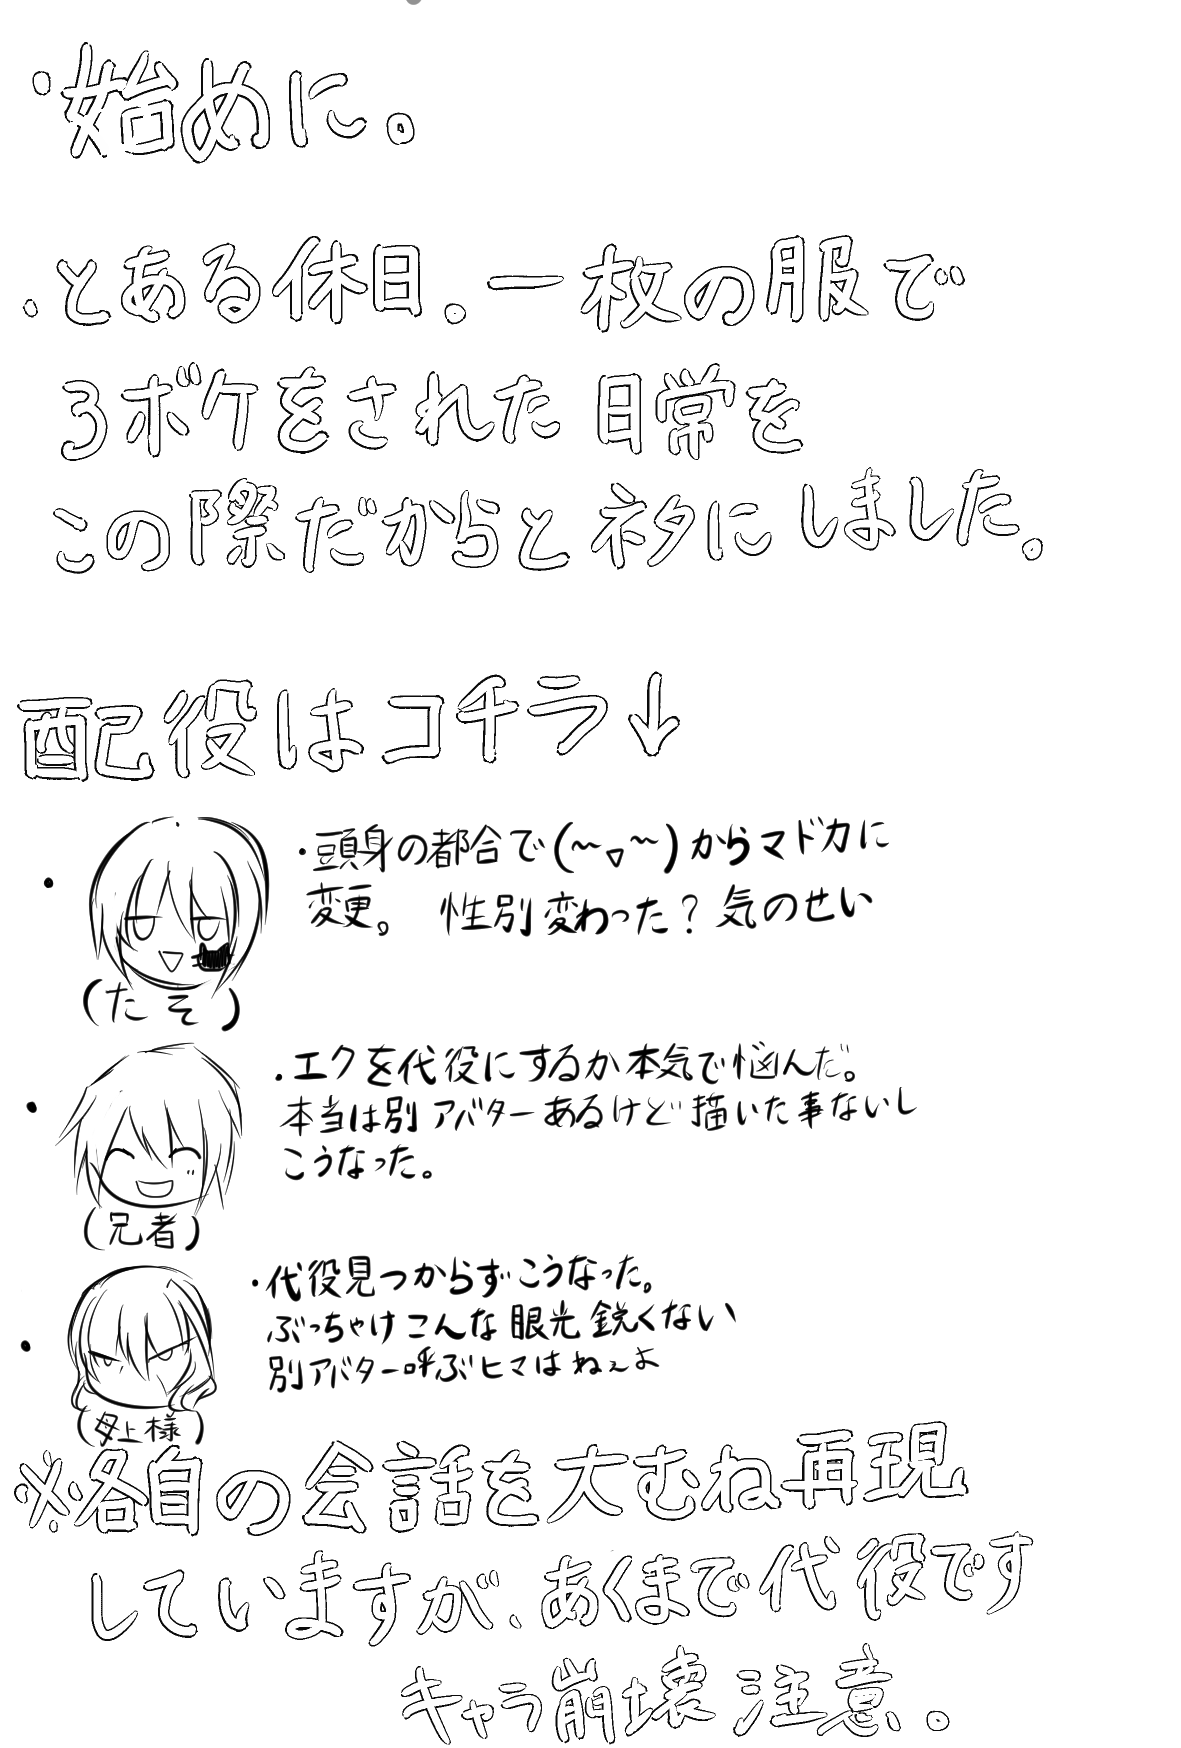 ・始めに。
・とある休日。一枚の服で
3ボケをされた日常を
この際だからとネタにしました。
配役はコチラ↓
・頭身の都合で(~▽~)からマドカに
変更。 性別変わった?気のせい
(たそ)
・エクを代役にするか本気で悩んだ。
本当は別アバターあるけど描いた事ないし
こうなった。
(兄者)
・代役見つからずこうなった。
ぶっちゃけこんな眼光鋭くない
別アバター呼ぶヒマはねぇよ
(母上様)
※各自の会話を大むね再現
していますが、あくまで代役です
キャラ崩壊注意。